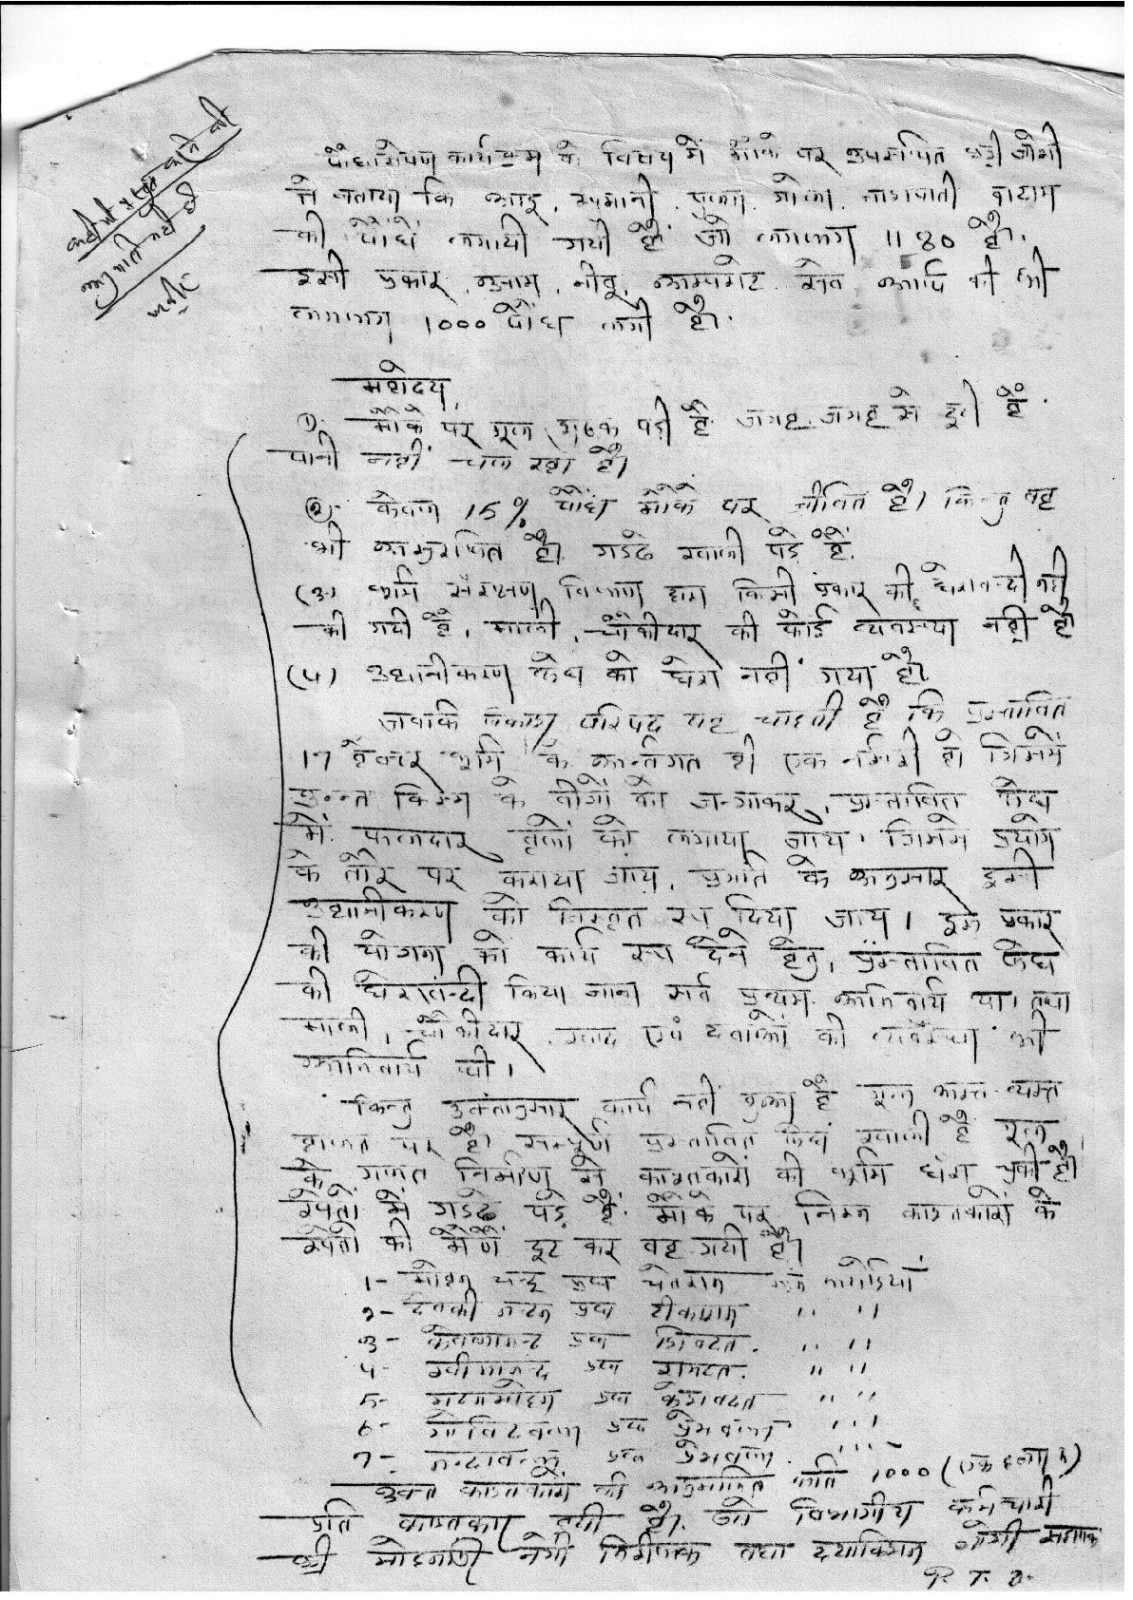 पौधारोपण कार्यक्रम के विषय में मौके पर उपस्थित श्री जोशी
ने बताया कि आडू, खुमानी, पुलम, नाशपाती बादाम
की पौधें लगायी गयी हैं जो लगभग 1180 है।
इसी प्रकार, नीबू, सेव आदि की भी
लगभग 1000 पौध लगी है।
महोदय,
① मौके पर गूल शुष्क पड़ी है जगह-जगह से टूटी हैं.
पानी नहीं चल रहा है।
② केवल 15% पौध मौके पर जीवित है। किन्तु वह
भी असुरक्षित है। गडढे खाली पड़े हैं.
(3) भूमि संरक्षण विभाग द्वारा किसी प्रकार की घेराबन्दी नहीं
की गयी है, माली, चौकीदार की कोई व्यवस्था नहीं है
(4) उद्यानीकरण क्षेत्र को घेरा नहीं गया है।
जबकि विकास परिषद यह चाहती है कि प्रस्तावित
17 हैक्टर भूमि के अर्न्तगत ही एक नर्सरी हो जिसमें
उन्नत किस्म के बीजों को जमाकर, प्रस्तावित क्षेत्र
में फलदार वृक्षों को लगाया जाय। जिसमें प्रयोग
के तौर पर कराया जाय, प्रगति के अनुसार इसी
उद्यानीकरण को विस्तृत रूप दिया जाय। इस प्रकार
की योजना को कार्य रूप देने हेतु, प्रस्तावित क्षेत्र
की घेराबन्दी किया जाना सर्व प्रथम अनिवार्य था। तथा
माली, चौकीदार, खाद एवं दवाओं की व्यवस्था भी
अनिवार्य थी।
किन्तु उक्तानुसार कार्य नहीं हुआ है गूल अस्त-व्यस्त
हालत पर है। सम्पूर्ण प्रस्तावित क्षेत्र खाली है गूल
के गलत निर्माण से काश्तकारों की भूमि धंस चुकी है।
खेतों में गडढे पड़े हैं. मौके पर निम्न काश्तकारों के
खेतों की टूट कर बह गयी है।
1- मोहन चन्द्र पुत्र
2- देवकी नन्दन पुत्र टीकाराम " "
3- पुत्र शिवदत्त. " "
4- पुत्र रामदत्त. " "
5- मदनमोहन पुत्र केशवदत्त " "
6- गोविन्दबल्लभ पुत्र प्रेमबल्लभ " "
7- पुत्र प्रेमबल्लभ. " "
उक्त काश्तकारों की अनुमानित क्षति 1000 (एक हजार रु)
प्रति काश्तकार हुयी है। जो विभागीय कर्मचारी
श्री नेगी निरीक्षक तथा दयाकिशन जोशी सहायक
P. T. O.